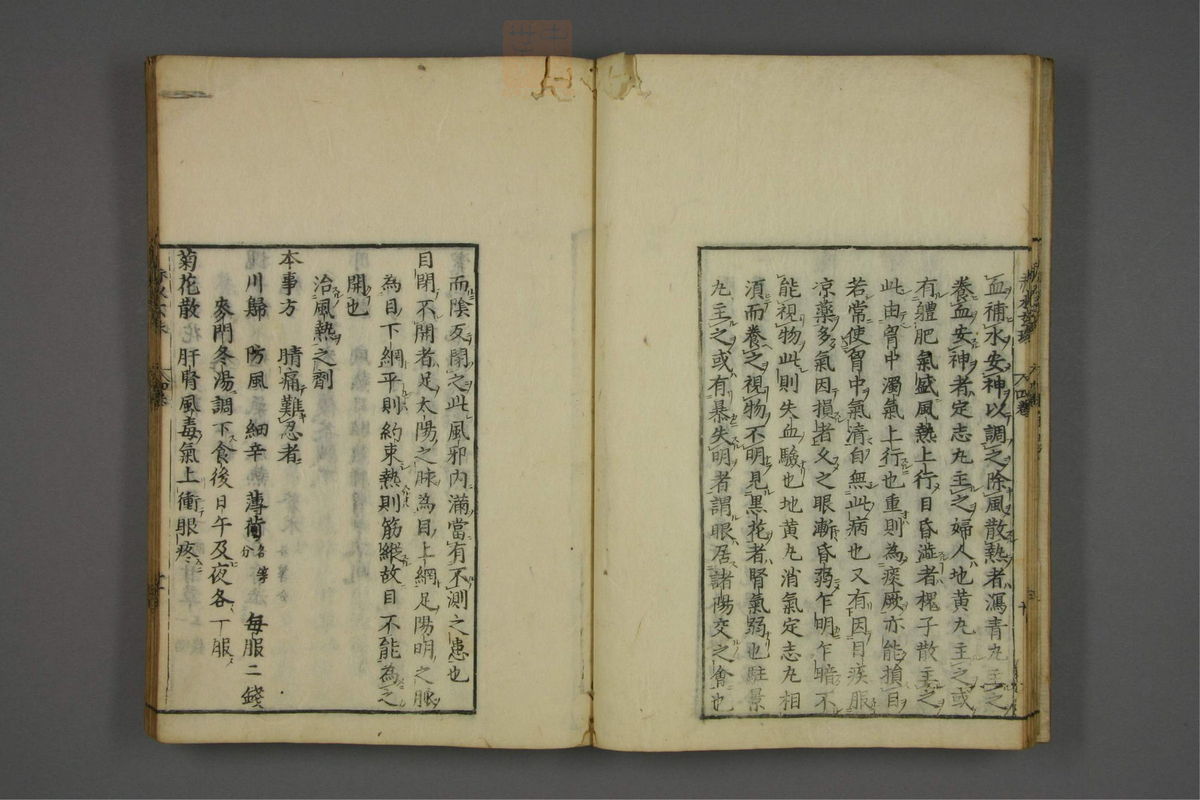 血補水安神以調之除風散熱者瀉青丸主之
養血安神者定志丸主之婦人地黄丸主之或
有體肥氣盛風熱上行目昏澁者槐子散主之
此由胷中濁氣上行也重則為痰厥亦能損目
若常使胷中氣清自無此病也又有因目疾服
凉藥多氣因損者久之眼漸昏弱乍明乍暗不
能視物此則失血驗也地黄丸消氣定志丸相
須而養之視物不明見黒花者腎氣弱也駐景
丸主之或有暴失明者謂眼居諸陽交之會也
而陰反閉之此風邪内滿當有不測之患也
目閉不開者足太陽之脉為目上綱足陽明之脉
為目下綱平則約束熱則筋縱故目不能為之
開也
治風熱之劑
本事方 睛痛難忍者
川歸 防風 細辛 薄荷各等分 毎服二錢
麥門冬湯調下食後日午及夜各一服
菊花散 肝腎風毒氣上衝眼疼